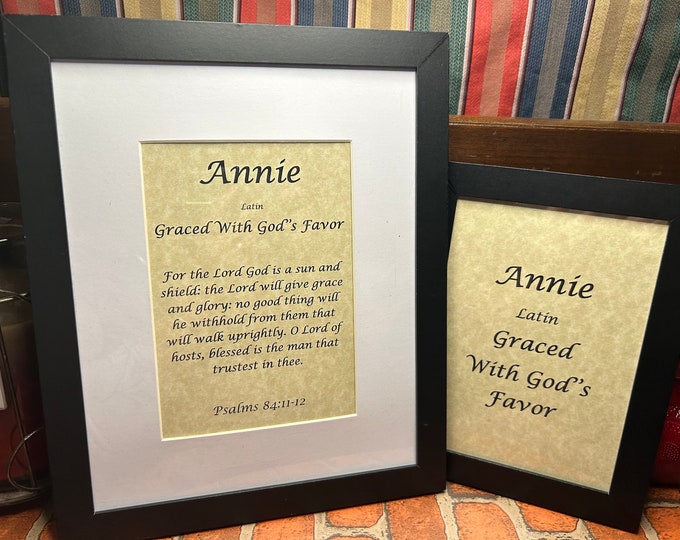 Annie
Latin
Graced With God"s Favor
For the Lord God is a sun and
shield: the Lord will give grace
and glory: no good thing will
he withhold from them that
will walk uprightly. O Lord of
hosts, blessed is the man that
trustest in thee.
Psalms 84:11-12
Annie
Latin
Graced
With God"s
Favor